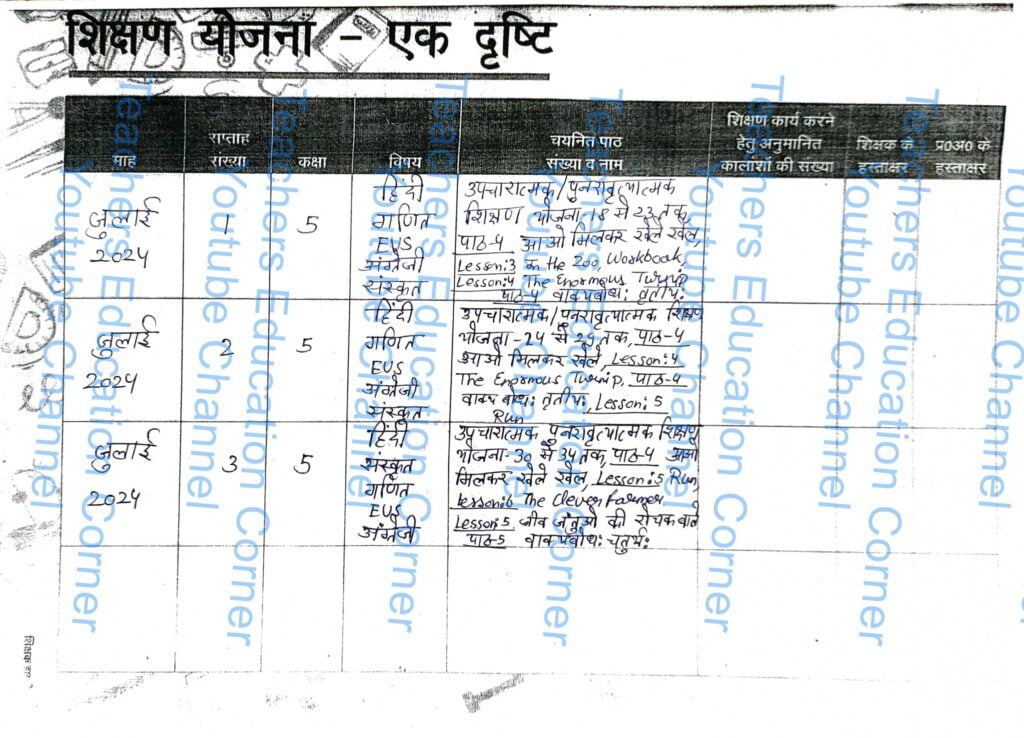 शिक्षण योजना – एक दृष्टि
माह
सप्ताह
संख्या
कक्षा
विषय
चयनित पाठ
संख्या व नाम
शिक्षण कार्य करने
हेतु अनुमानित
कालांशों की संख्या
शिक्षक के
हस्ताक्षर
प्र०अ० के
हस्ताक्षर
जुलाई
2024
1
5
हिंदी
गणित
EVS
अंग्रेजी
संस्कृत
उपचारात्मक/पुनरावृत्यात्मक
शिक्षण योजना-18 से 23 तक,
पाठ-4 आओ मिलकर खेले खेल,
Lesson:3 In the Zoo, Workbook,
Lesson:4 The Enormous Turnip
पाठ-4 वाक्यबोध: तृतीय:
जुलाई
2024
2
5
हिंदी
गणित
EVS
अंग्रेजी
संस्कृत
उपचारात्मक/पुनरावृत्यात्मक शिक्षण
योजना-24 से 29 तक, पाठ-4
आओ मिलकर खेले, Lesson:4
The Enormous Turnip, पाठ-4
वाक्य बोध: तृतीय:, Lesson:5
Run
जुलाई
2024
3
5
हिंदी
संस्कृत
गणित
EVS
अंग्रेजी
उपचारात्मक पुनरावृत्यात्मक शिक्षण
योजना-30 से 34 तक, पाठ-4 आओ
मिलकर खेले खेल, Lesson:5 Run,
Lesson:6 The Clever Farmer
Lesson:5 जीव जंतुओ की रोचक बाते
पाठ-5 वाक्यबोध: चतुर्थ:
Teachers Education Corner
Youtube Channel
Teachers Education Corner
Youtube Channel
Teachers Education Corner
Youtube Channel
Teachers Education Corner
Youtube Channel
Teachers Education Corner
Youtube Channel
Teachers Education Corner
Youtube Channel